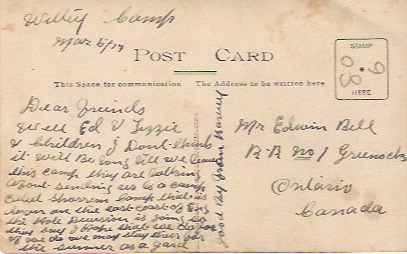 Witley Camp
Mar 5/17
POST CARD
This Space for communication
The Address to be written here
STAMP
HERE
Dear Friends
Well Ed & Lizzie
& Children I Dont think
it Will Be long till we leave
this camp they are talking
About sending us to a camp
called Shorrem Camp that is
down on the east coast of Eng
the Hole Devision is going so
they say I Hope that we do for
if we do we may stay there for
the summer as a gard
good Bye from Harvey
Mr Edwin Bell
RR No 1 Greenock
Ontario
Canada